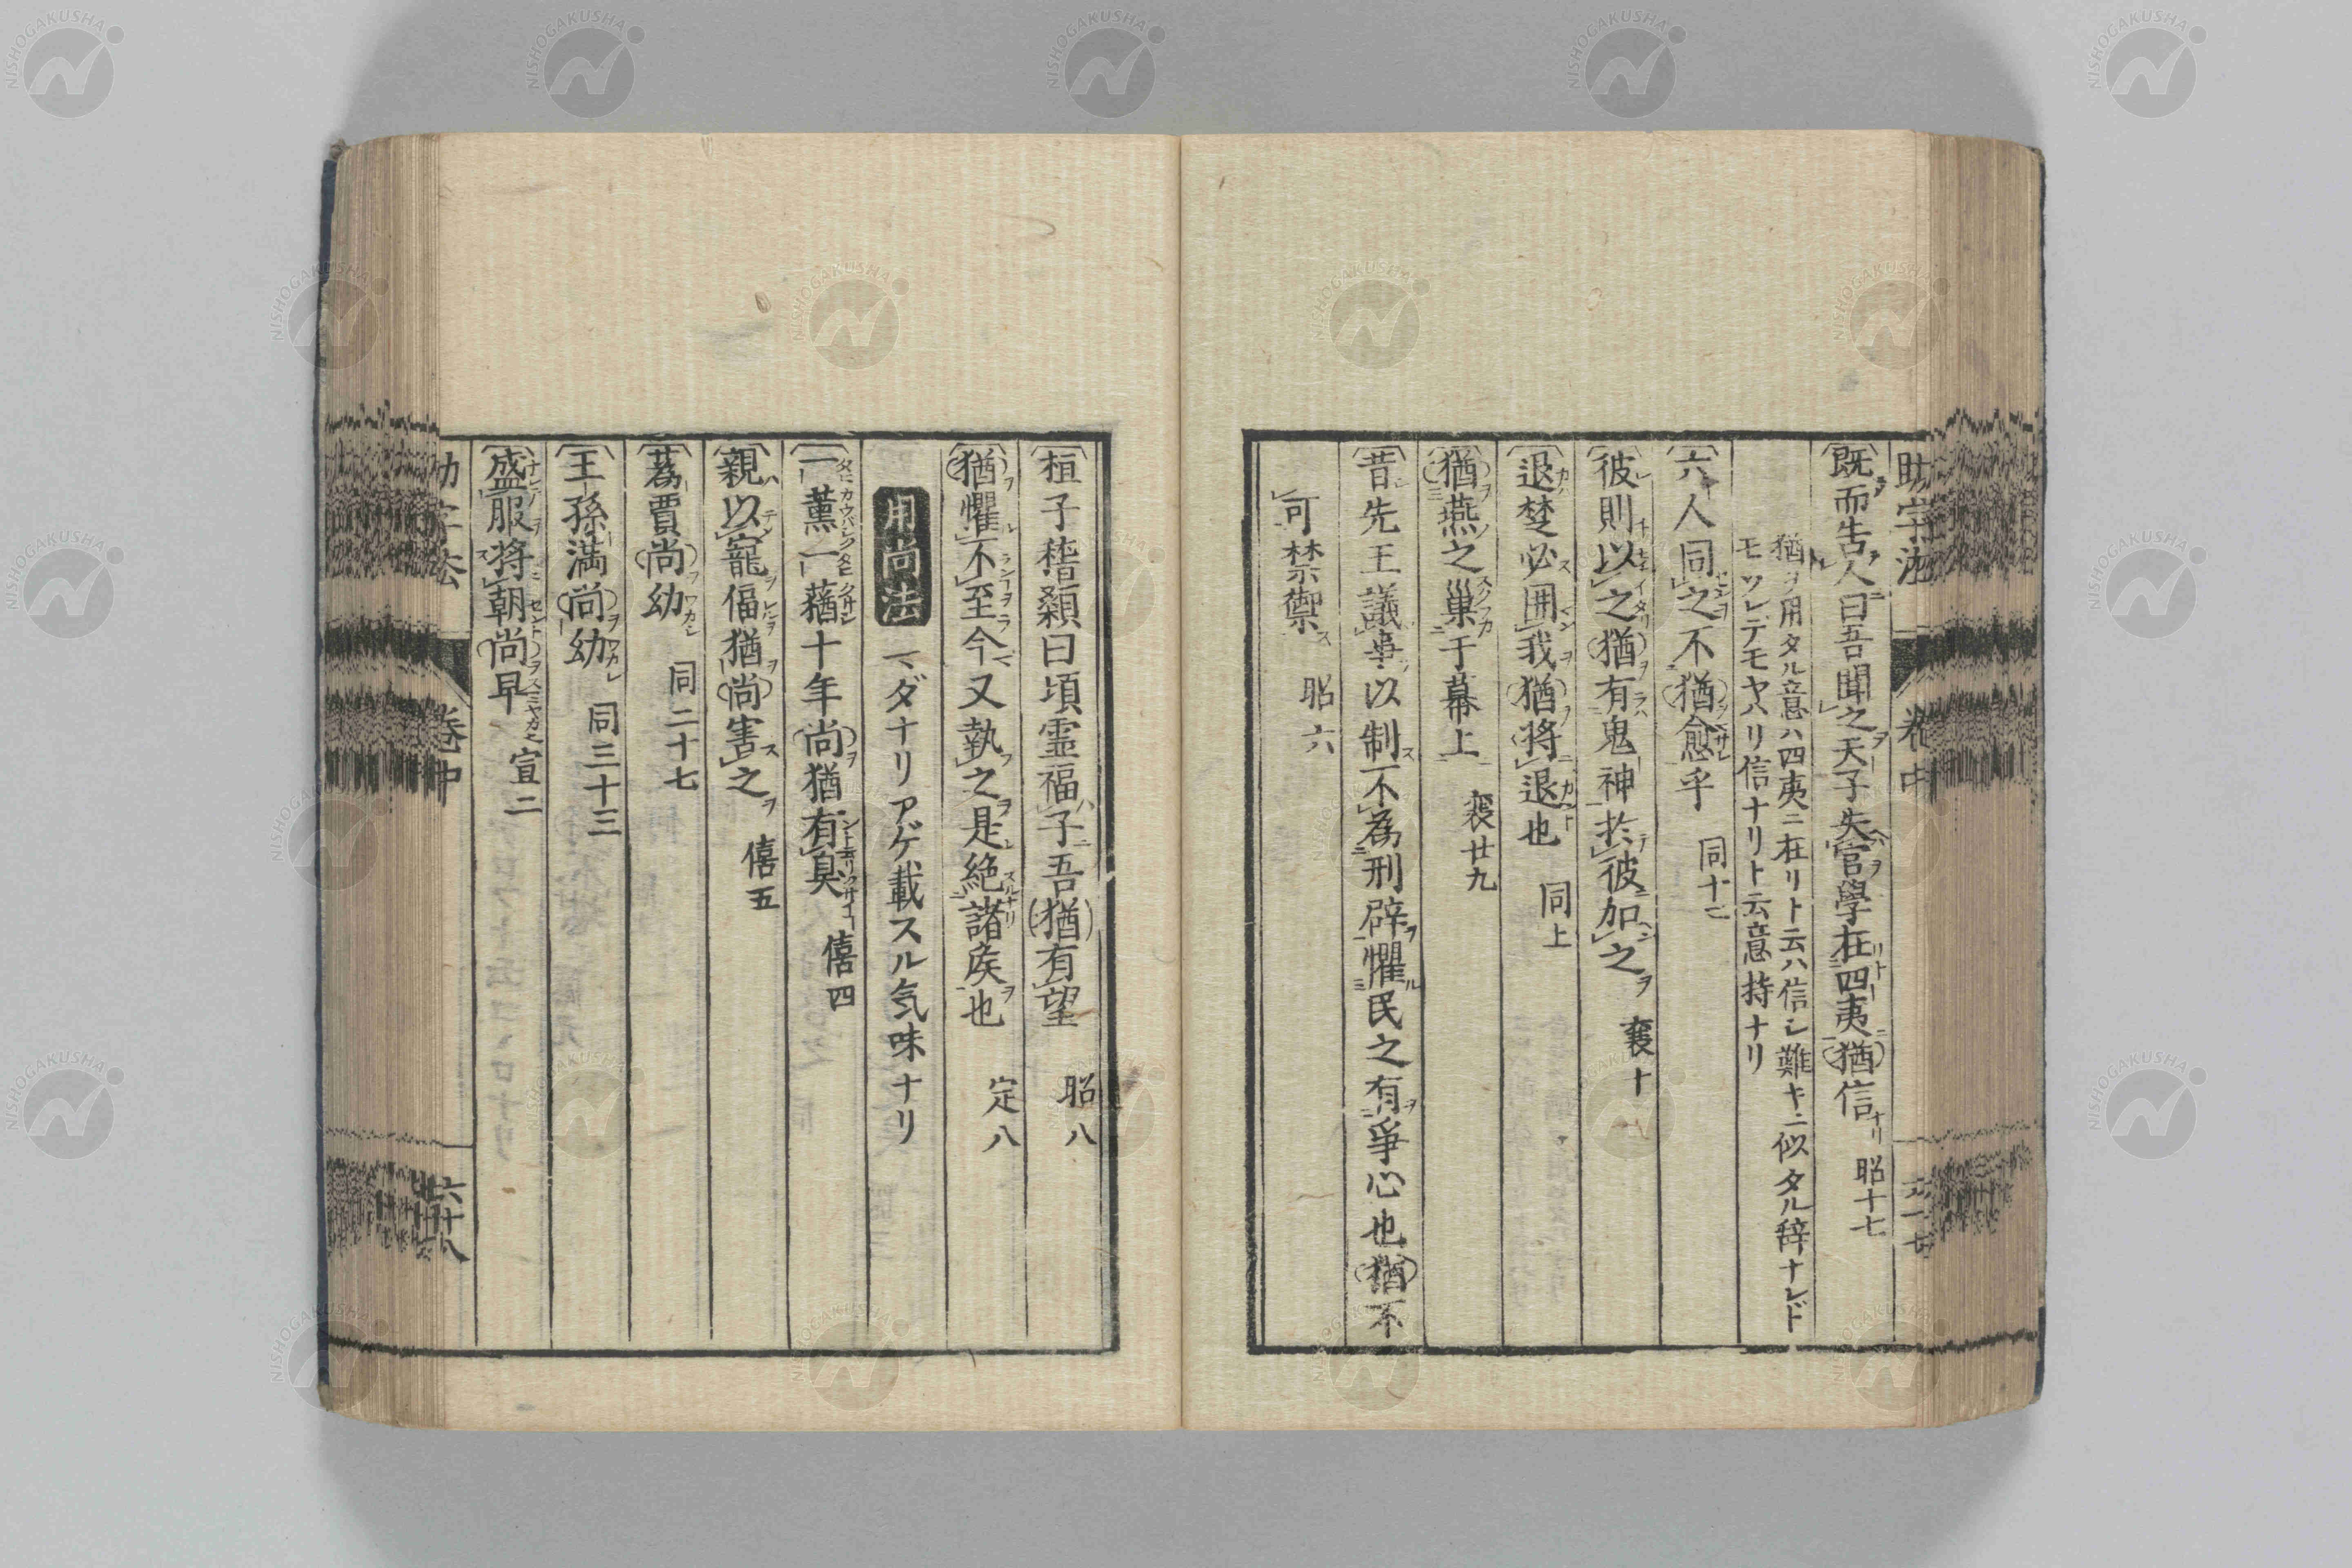 助字法 卷中
既而告人曰吾聞之天子失官學在四夷猶信 昭十七
猶ヲ用タル意ハ四夷ニ在リト云ハ信シ難キニ似タル辞ナレド
モソレデモヤハリ信ナリト云意持ナリ
六人同之不猶愈乎 同十二
彼則以之猶有鬼神於彼加之 襄十
退楚必囲我猶将退也 同上
猶燕之巢于幕上 襄廿九
昔先王議事以制不為刑辟懼民之有爭心也猶不
可禁禦 昭六
桓子稽顙曰頃靈福子吾猶有望 昭八
猶懼不至今又執之是絶諸矦也 定八
用尚法 マダナリアゲ載スル気味ナリ
一薫一蕕十年尚猶有臭 僖四
親以寵偪猶尚害之 僖五
蒍賈尚幼 同二十七
王孫満尚幼 同三十三
盛服将朝尚早 宣二
助字法 卷中 六十八
NISHOGAKUSHA